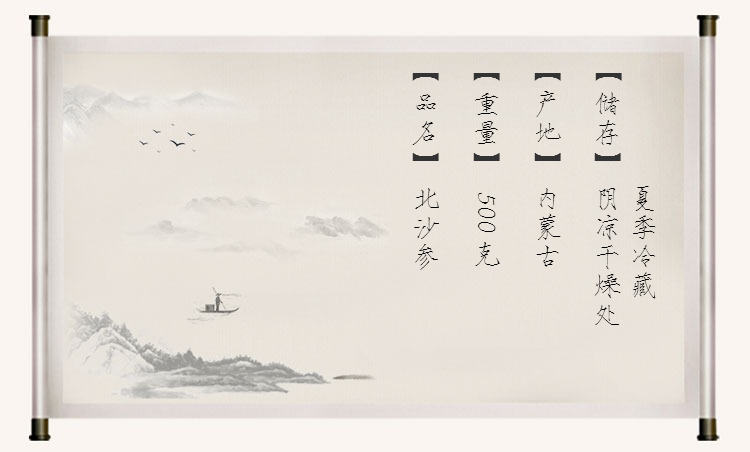 【品名】北沙参
【重量】500克
【产地】内蒙古
【储存】阴凉干燥处
夏季冷藏